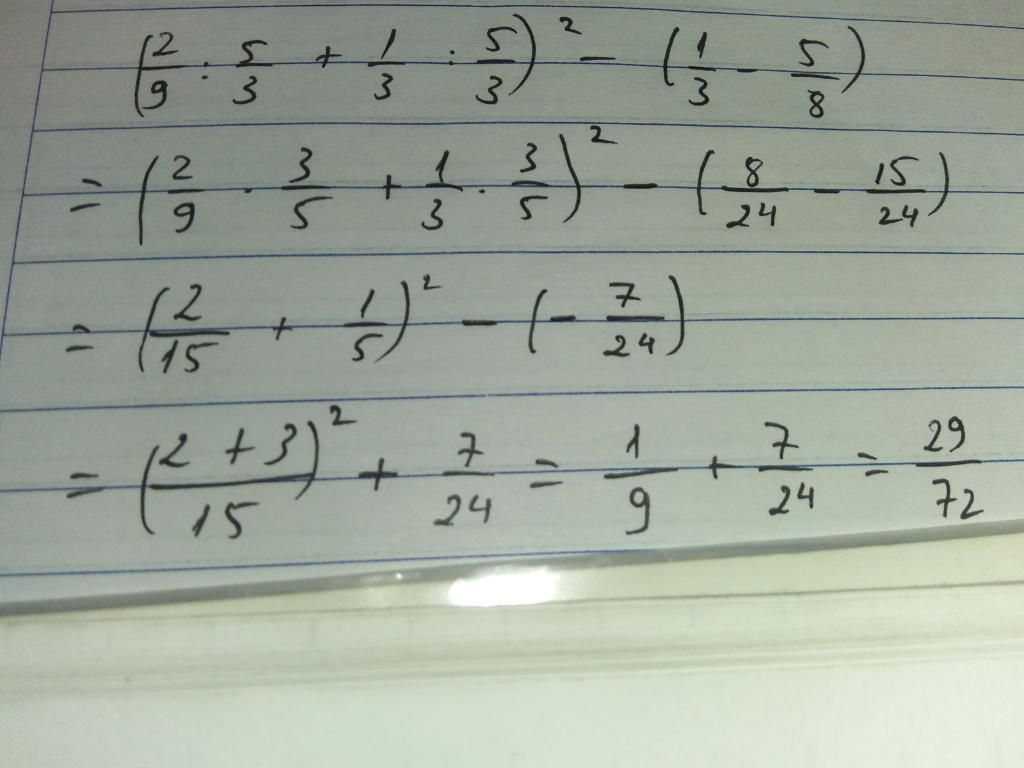 (2/9 : 5/3 + 1/3 : 5/3)² − (1/3 − 5/8)
= (2/9 · 3/5 + 1/3 · 3/5)² − (8/24 − 15/24)
= (2/15 + 1/5)² − (− 7/24)
= ((2 + 3)/15)² + 7/24 = 1/9 + 7/24 = 29/72